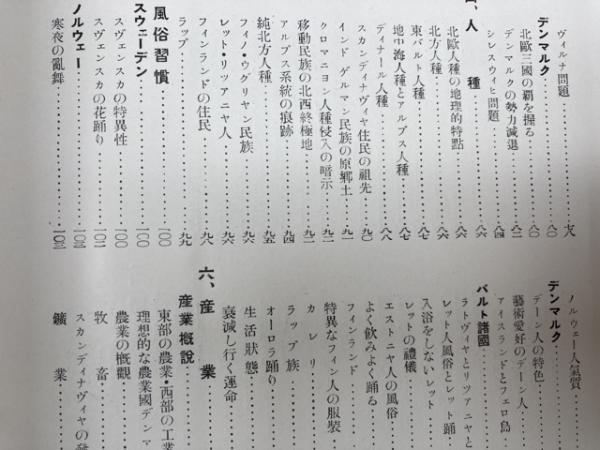 ヴィルナ問題……………七八
デンマルク……………八〇
北歐三國の覇を握る……………八〇
デンマルクの勢力減退……………八二
シレスウィヒ問題……………八四
、人種……………八六
北歐人種の地理的特點……………八六
北方人種……………八六
東バルト人種……………八七
地中海人種とアルプス人種……………八七
ディナール人種……………八八
スカンディナヴィヤ住民の祖先……………九〇
インドゲルマン民族の原鄕土……………九一
クロマニヨン人種侵入の暗示……………九二
移動民族の北西終極地……………九二
アルプス系統の痕跡……………九四
純北方人種……………九五
フィノ・ウグリヤン民族……………九六
レット・リッアニヤ人……………九六
フィンランドの住民……………九八
ラップ……………九九
風俗習慣……………一〇〇
スウェーデン……………一〇〇
スヴェンスカの特異性……………一〇〇
スヴェンスカの花踊り……………一〇二
ノルウェー……………一〇三
寒夜の亂舞……………一〇三
ノルウェー人氣質
デンマルク
デーン人の特色
藝術愛好のデーン人
アイスランドとフェロ島
バルト諸國
ラトヴィヤとリツアニヤと
レット人風俗とレット踊
入浴をしないレット
レットの禮儀
エストニヤ人の風俗
よく飮みよく踊る
フィンランド
特異なフィン人の服裝
カレリ
ラップ族
オーロラ踊り
生活狀態
衰滅し行く運命
六、産業
産業槪說
東部の農業・西部の工業
理想的な農業國デンマ
農業の槪觀
牧畜
スカンディナヴィヤの發
鑛業